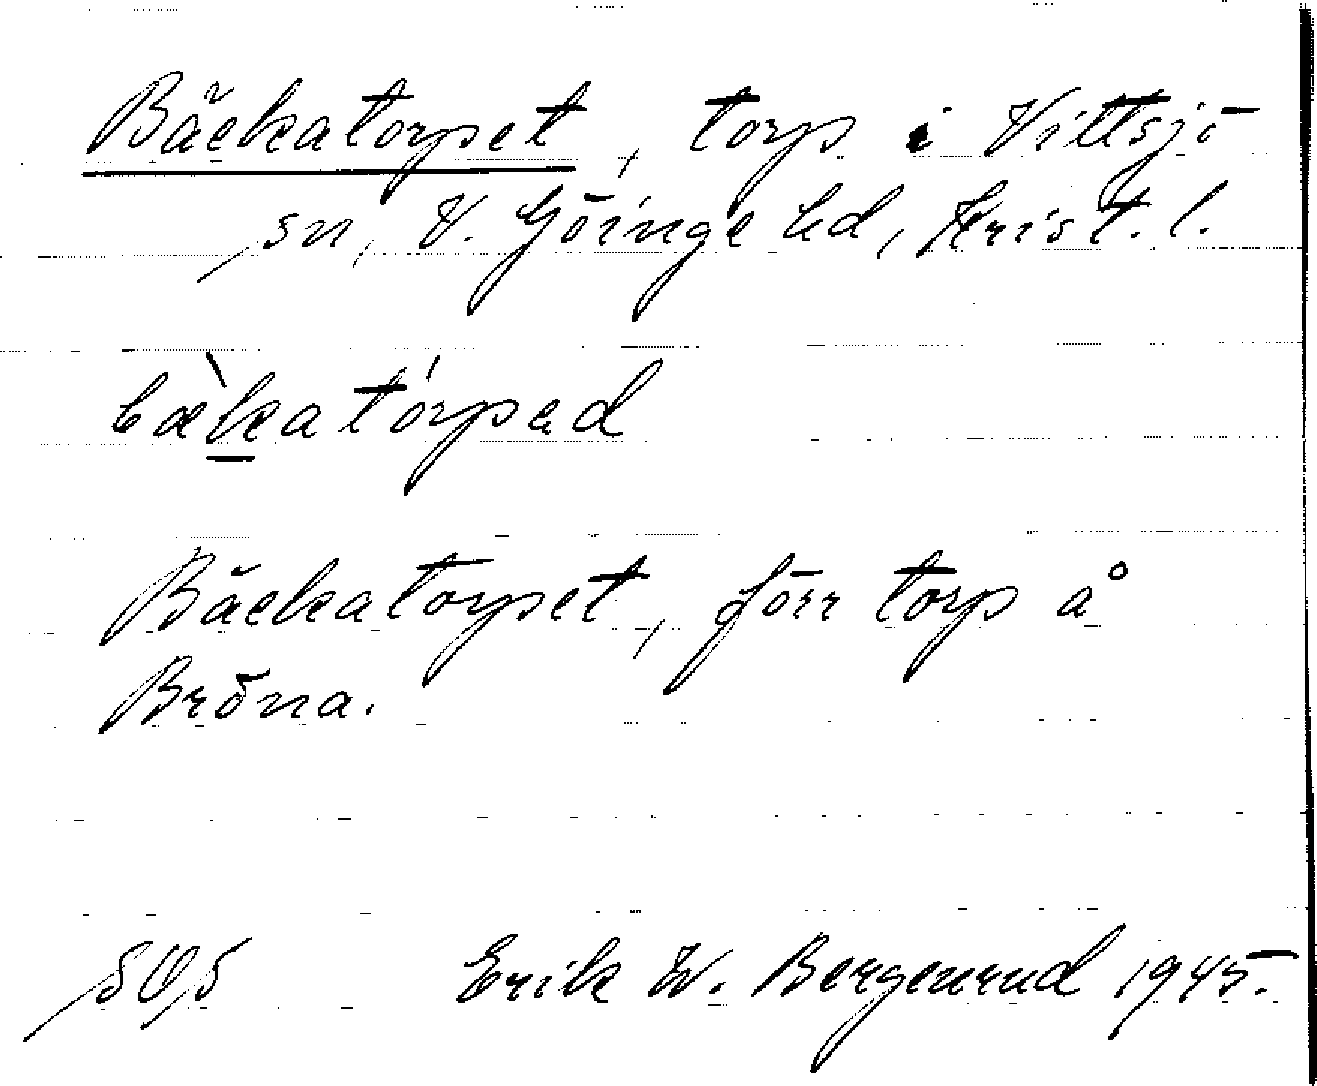 Bäckatorpet, torp i Vittsjö
sn, V. Göinge hd, Krist. l.
bæ̀katórpəd
Bäckatorpet, förr torp å
Bröna.
Erik W. Bergenrud 1945.